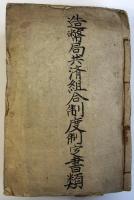 造幣局共済組合制度制定書類